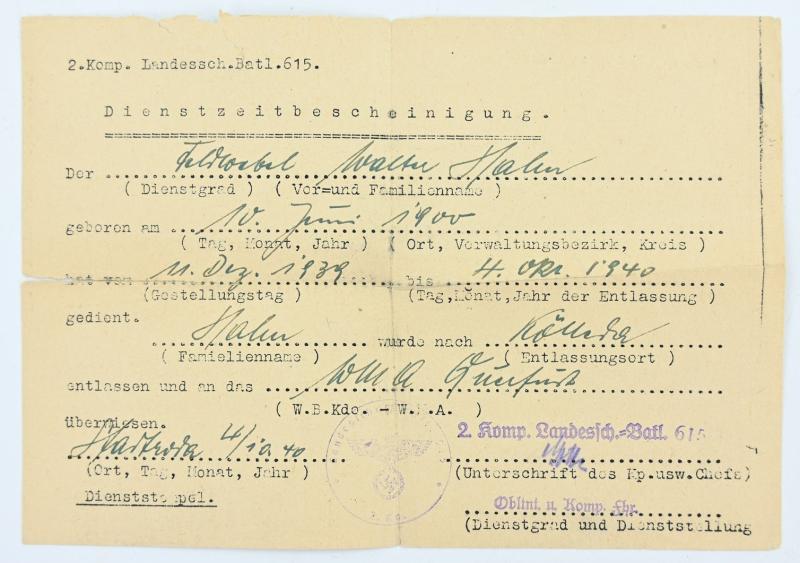 2.Komp. Landessch.Batl.615.
Dienstzeitbescheinigung.
Der Feldwebel Walter Hahn
( Dienstgrad ) ( Vor=und Familienname )
geboren am 10. Juni 1900
( Tag, Monat, Jahr ) ( Ort, Verwaltungsbezirk, Kreis )
hat von 11. Dez. 1939 bis 4. Okt. 1940
(Gestellungstag ) (Tag,Monat,Jahr der Entlassung )
gedient.
Hahn wurde nach Kölleda
( Famielienname ) ( Entlassungsort )
entlassen und an das WMA Querfurt
( W.B.Kdo. - W.M.A. )
überwiesen.
2. Komp. Landessch.=Batl. 615
4/10 40
(Ort, Tag, Monat, Jahr ) (Unterschrift des Kp.usw.Chefs)
Dienststempel.
Obltnt. u. Komp. Fhr.
(Dienstgrad und Dienststellung